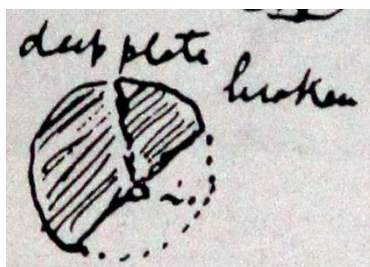 deep plate
broken